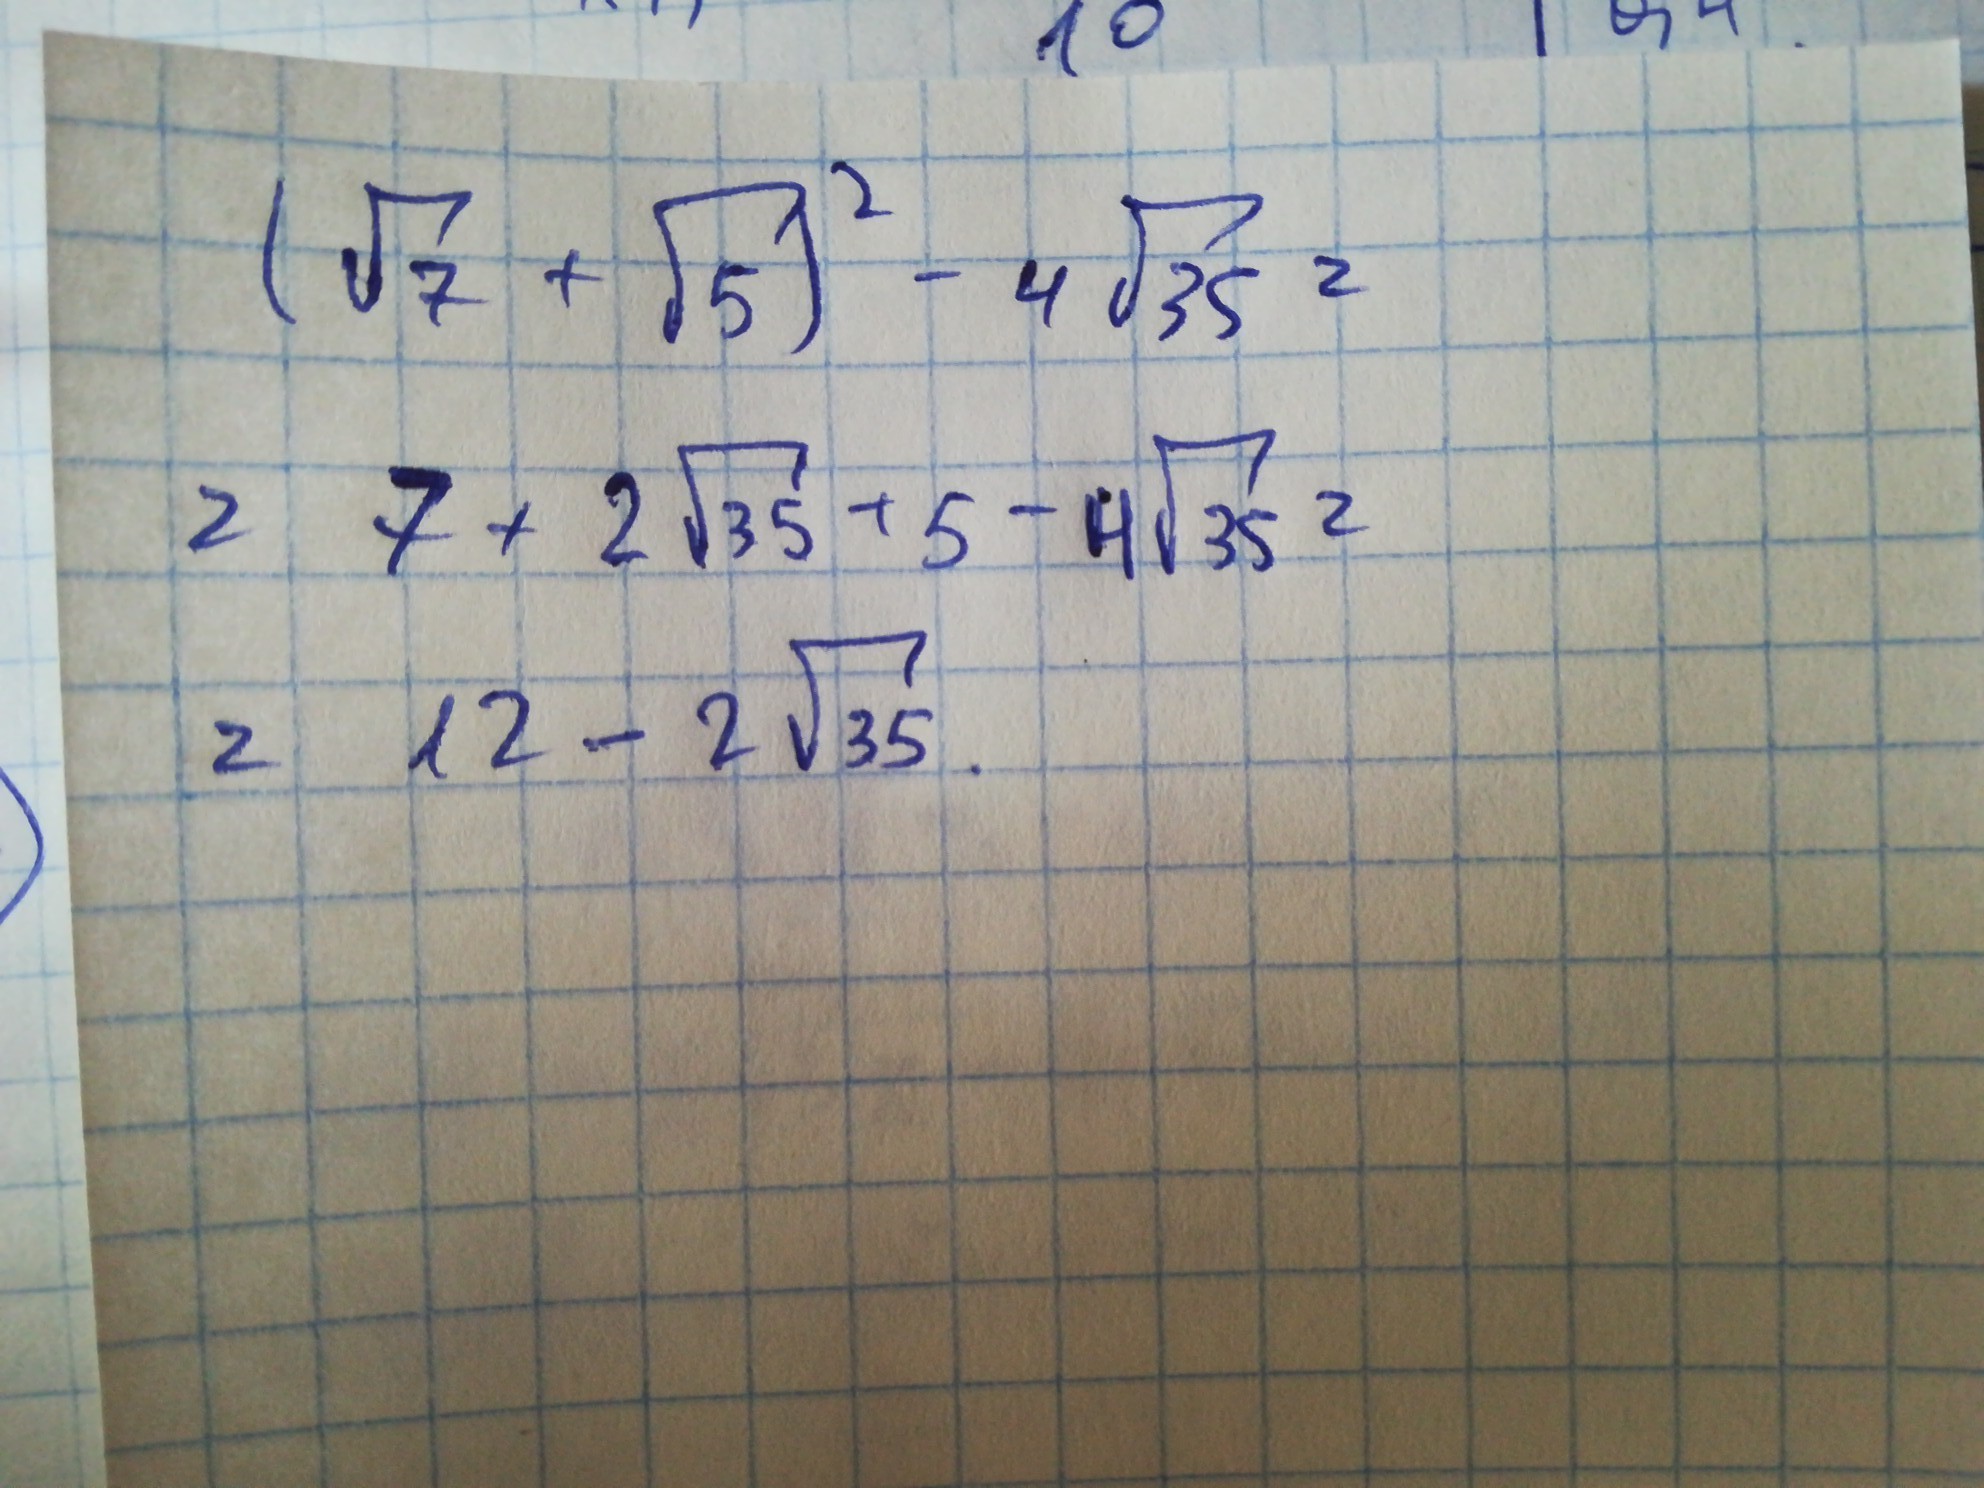 10
(√7 + √5)² - 4√35 =
= 7 + 2√35 + 5 - 4√35 =
= 12 - 2√35.